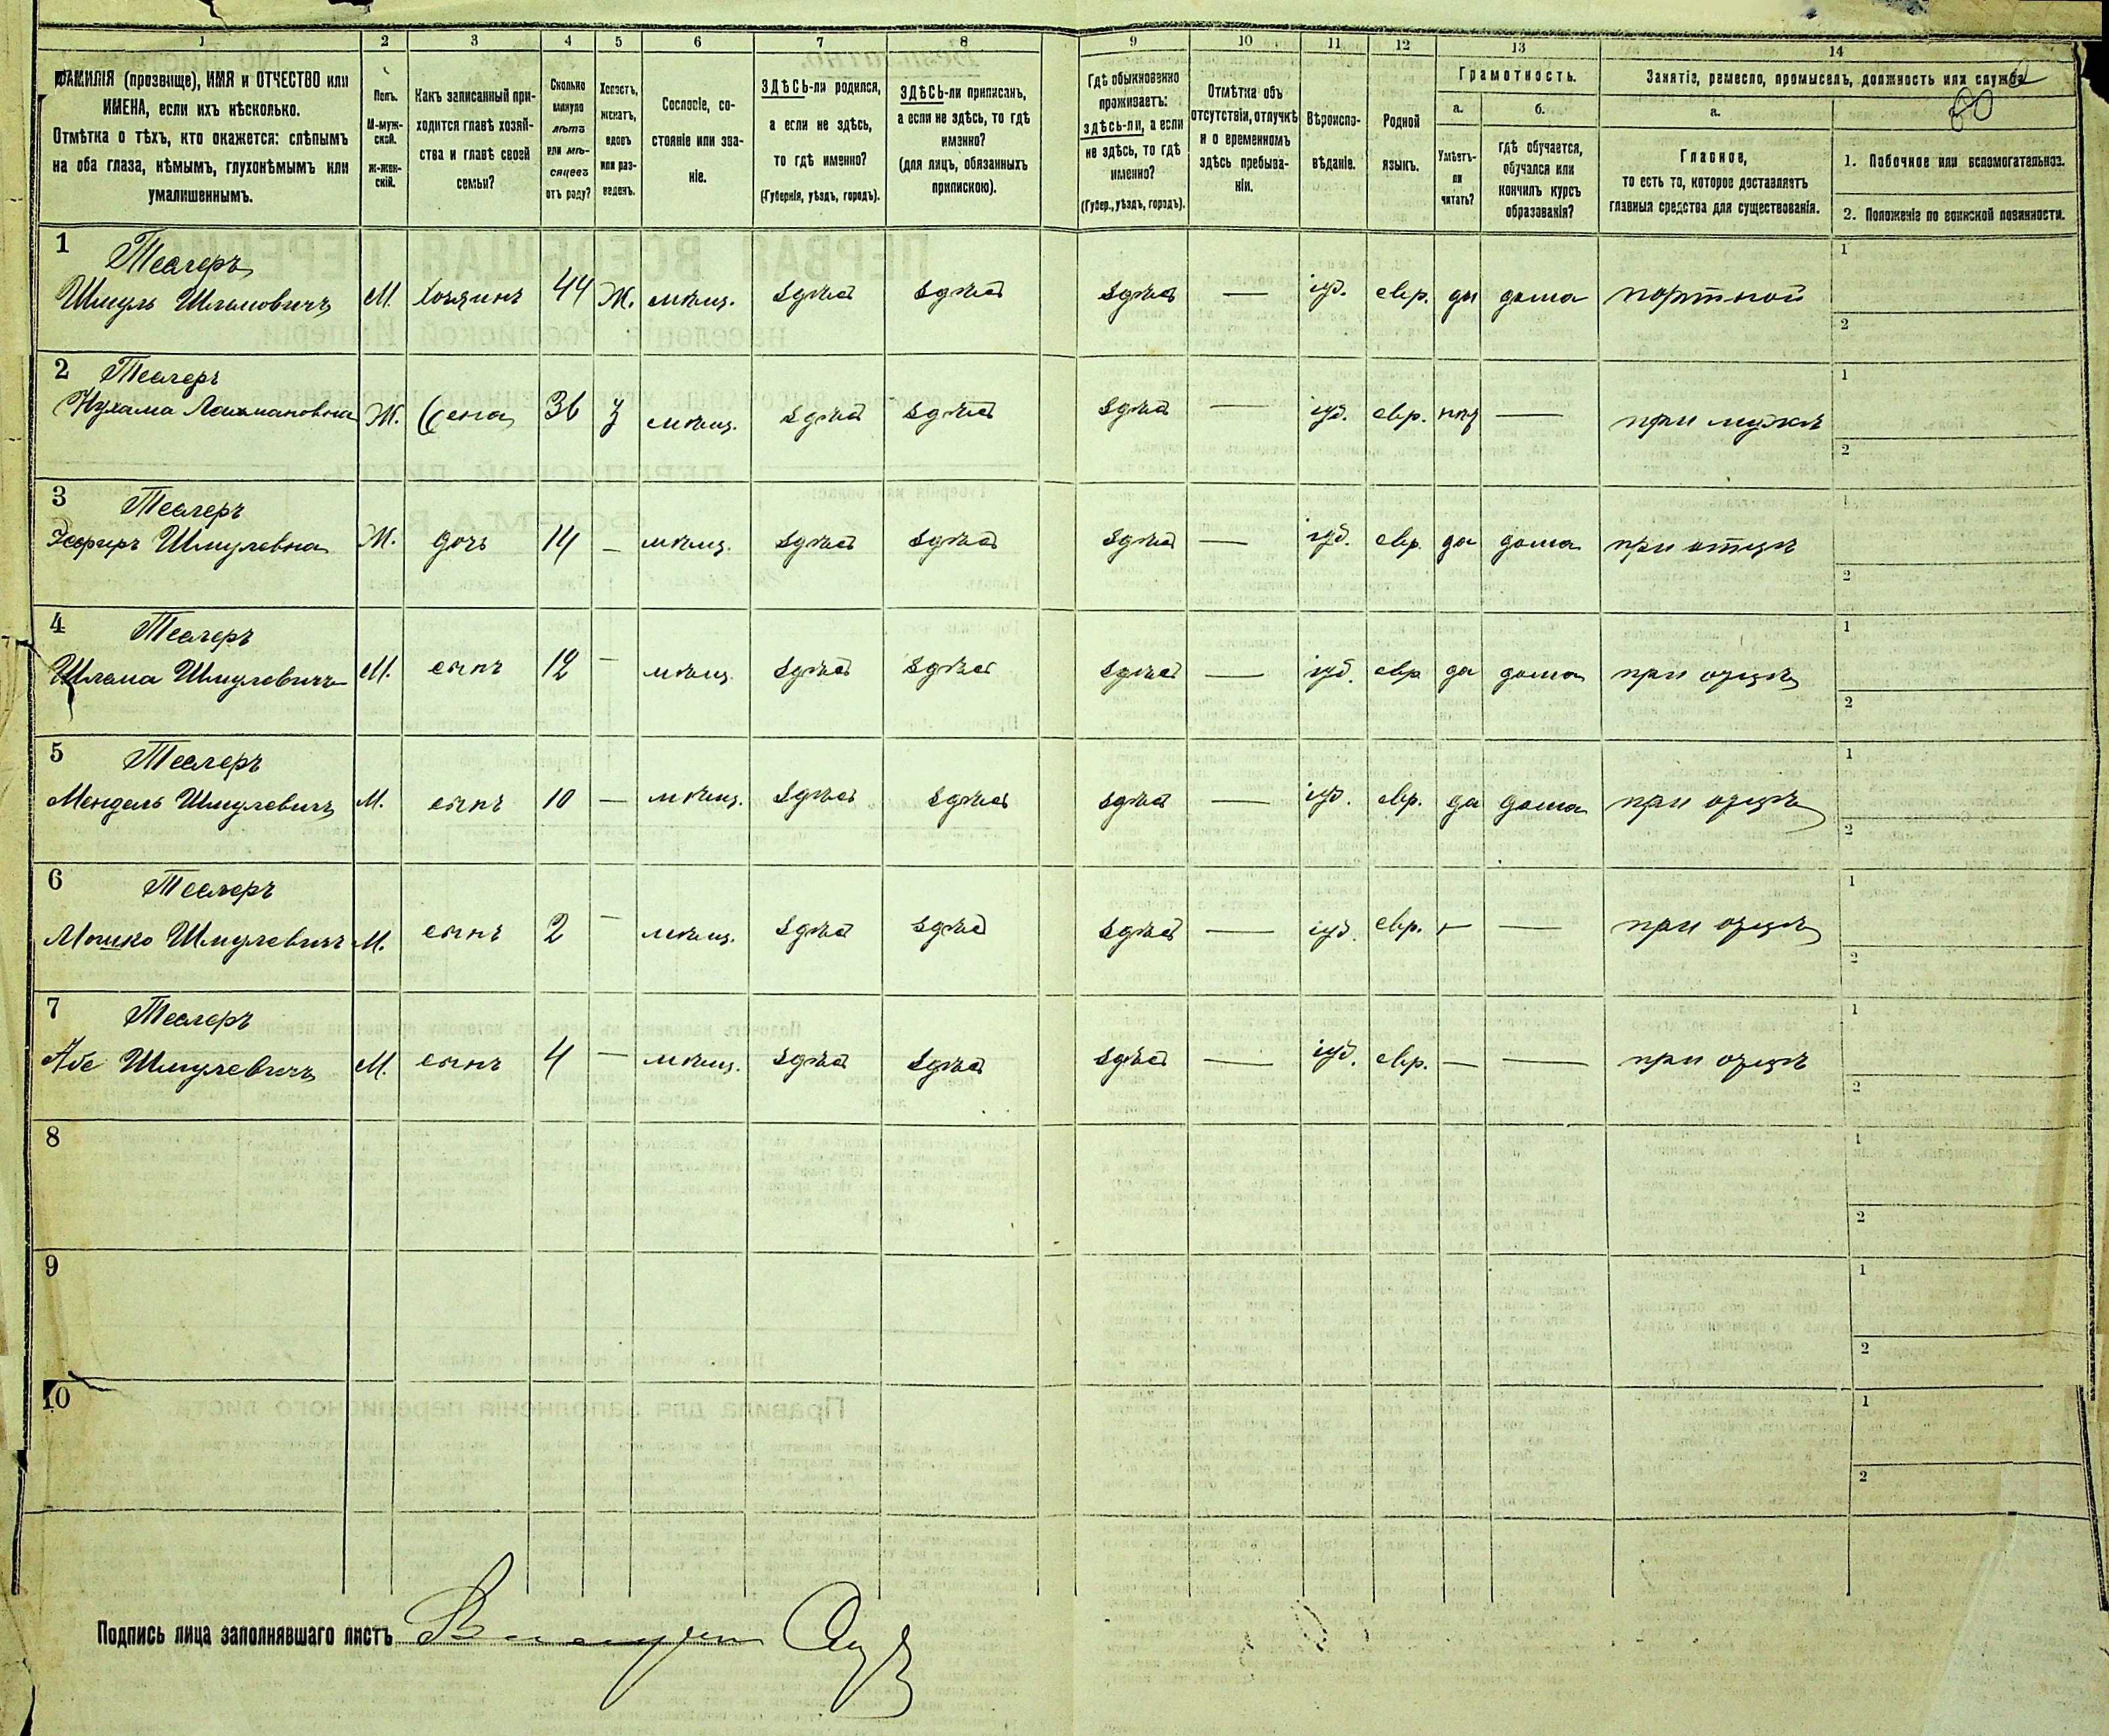 1 2 3 4 5 6 7 8 9 10 11 12 13 14
ФАМИЛІЯ (прозвище), ИМЯ и ОТЧЕСТВО или
ИМЕНА, если ихъ нѣсколько.
Отмѣтка о тѣхъ, кто окажется: слѣпымъ
на оба глаза, нѣмымъ, глухонѣмымъ или
умалишеннымъ.
Полъ.
М-муж-
ской.
Ж-жен-
скій.
Какъ записанный при-
ходится главѣ хозяй-
ства и главѣ своей
семьи?
Сколько
минуло
лѣтъ
или мѣ-
сяцевъ
отъ роду?
Холостъ,
женатъ,
вдовъ
или раз-
веденъ.
Сословіе, со-
стояніе или зва-
ніе.
ЗДѢСЬ-ли родился,
а если не здѣсь,
то гдѣ именно?
(Губернія, уѣздъ, городъ).
ЗДѢСЬ-ли приписанъ,
а если не здѣсь, то гдѣ
именно?
(для лицъ, обязанныхъ
припискою).
Гдѣ обыкновенно
проживаетъ:
здѣсь-ли, а если
не здѣсь, то гдѣ
именно?
(Губер., уѣздъ, городъ).
Отмѣтка объ
отсутствіи, отлучкѣ
и о временномъ
здѣсь пребыва-
ніи.
Вѣроиспо-
вѣданіе.
Родной
языкъ.
Грамотность.
а.
Умѣетъ-
ли
читать?
б.
гдѣ обучается,
обучался или
кончилъ курсъ
образованія?
Занятіе, ремесло, промыселъ, должность или служба
а.
Главное,
то есть то, которое доставляетъ
главныя средства для существованія.
1. Побочное или вспомогательное.
2. Положеніе по воинской повинности.
1 Теслеръ
Шмуль Шлемовичъ М. хозяинъ 44 Ж. мѣщ. здѣсь здѣсь здѣсь — іуд. евр. да дома портной 1 2
2 Теслеръ
Нухама Ж. жена 36 З мѣщ. здѣсь здѣсь здѣсь — іуд. евр. нѣт — при мужѣ 1 2
3 Теслеръ
Эсфирь Шмулевна Ж. дочь 14 — мѣщ. здѣсь здѣсь здѣсь — іуд. евр. да дома при отцѣ 1 2
4 Теслеръ
Шлема Шмулевичъ М. сынъ 12 — мѣщ. здѣсь здѣсь здѣсь — іуд. евр да дома при отцѣ 1 2
5 Теслеръ
Мендель Шмулевичъ М. сынъ 10 — мѣщ. здѣсь здѣсь здѣсь — іуд. евр. да дома при отцѣ 1 2
6 Теслеръ
Мошко Шмулевичъ М. сынъ 2 — мѣщ. здѣсь здѣсь здѣсь — іуд. евр. — — при отцѣ 1 2
7 Теслеръ
Абе Шмулевичъ М. сынъ 4 — мѣщ. здѣсь здѣсь здѣсь — іуд. евр. — — при отцѣ 1 2
8 1 2
9 1 2
10 1 2
Подпись лица заполнявшаго листъ